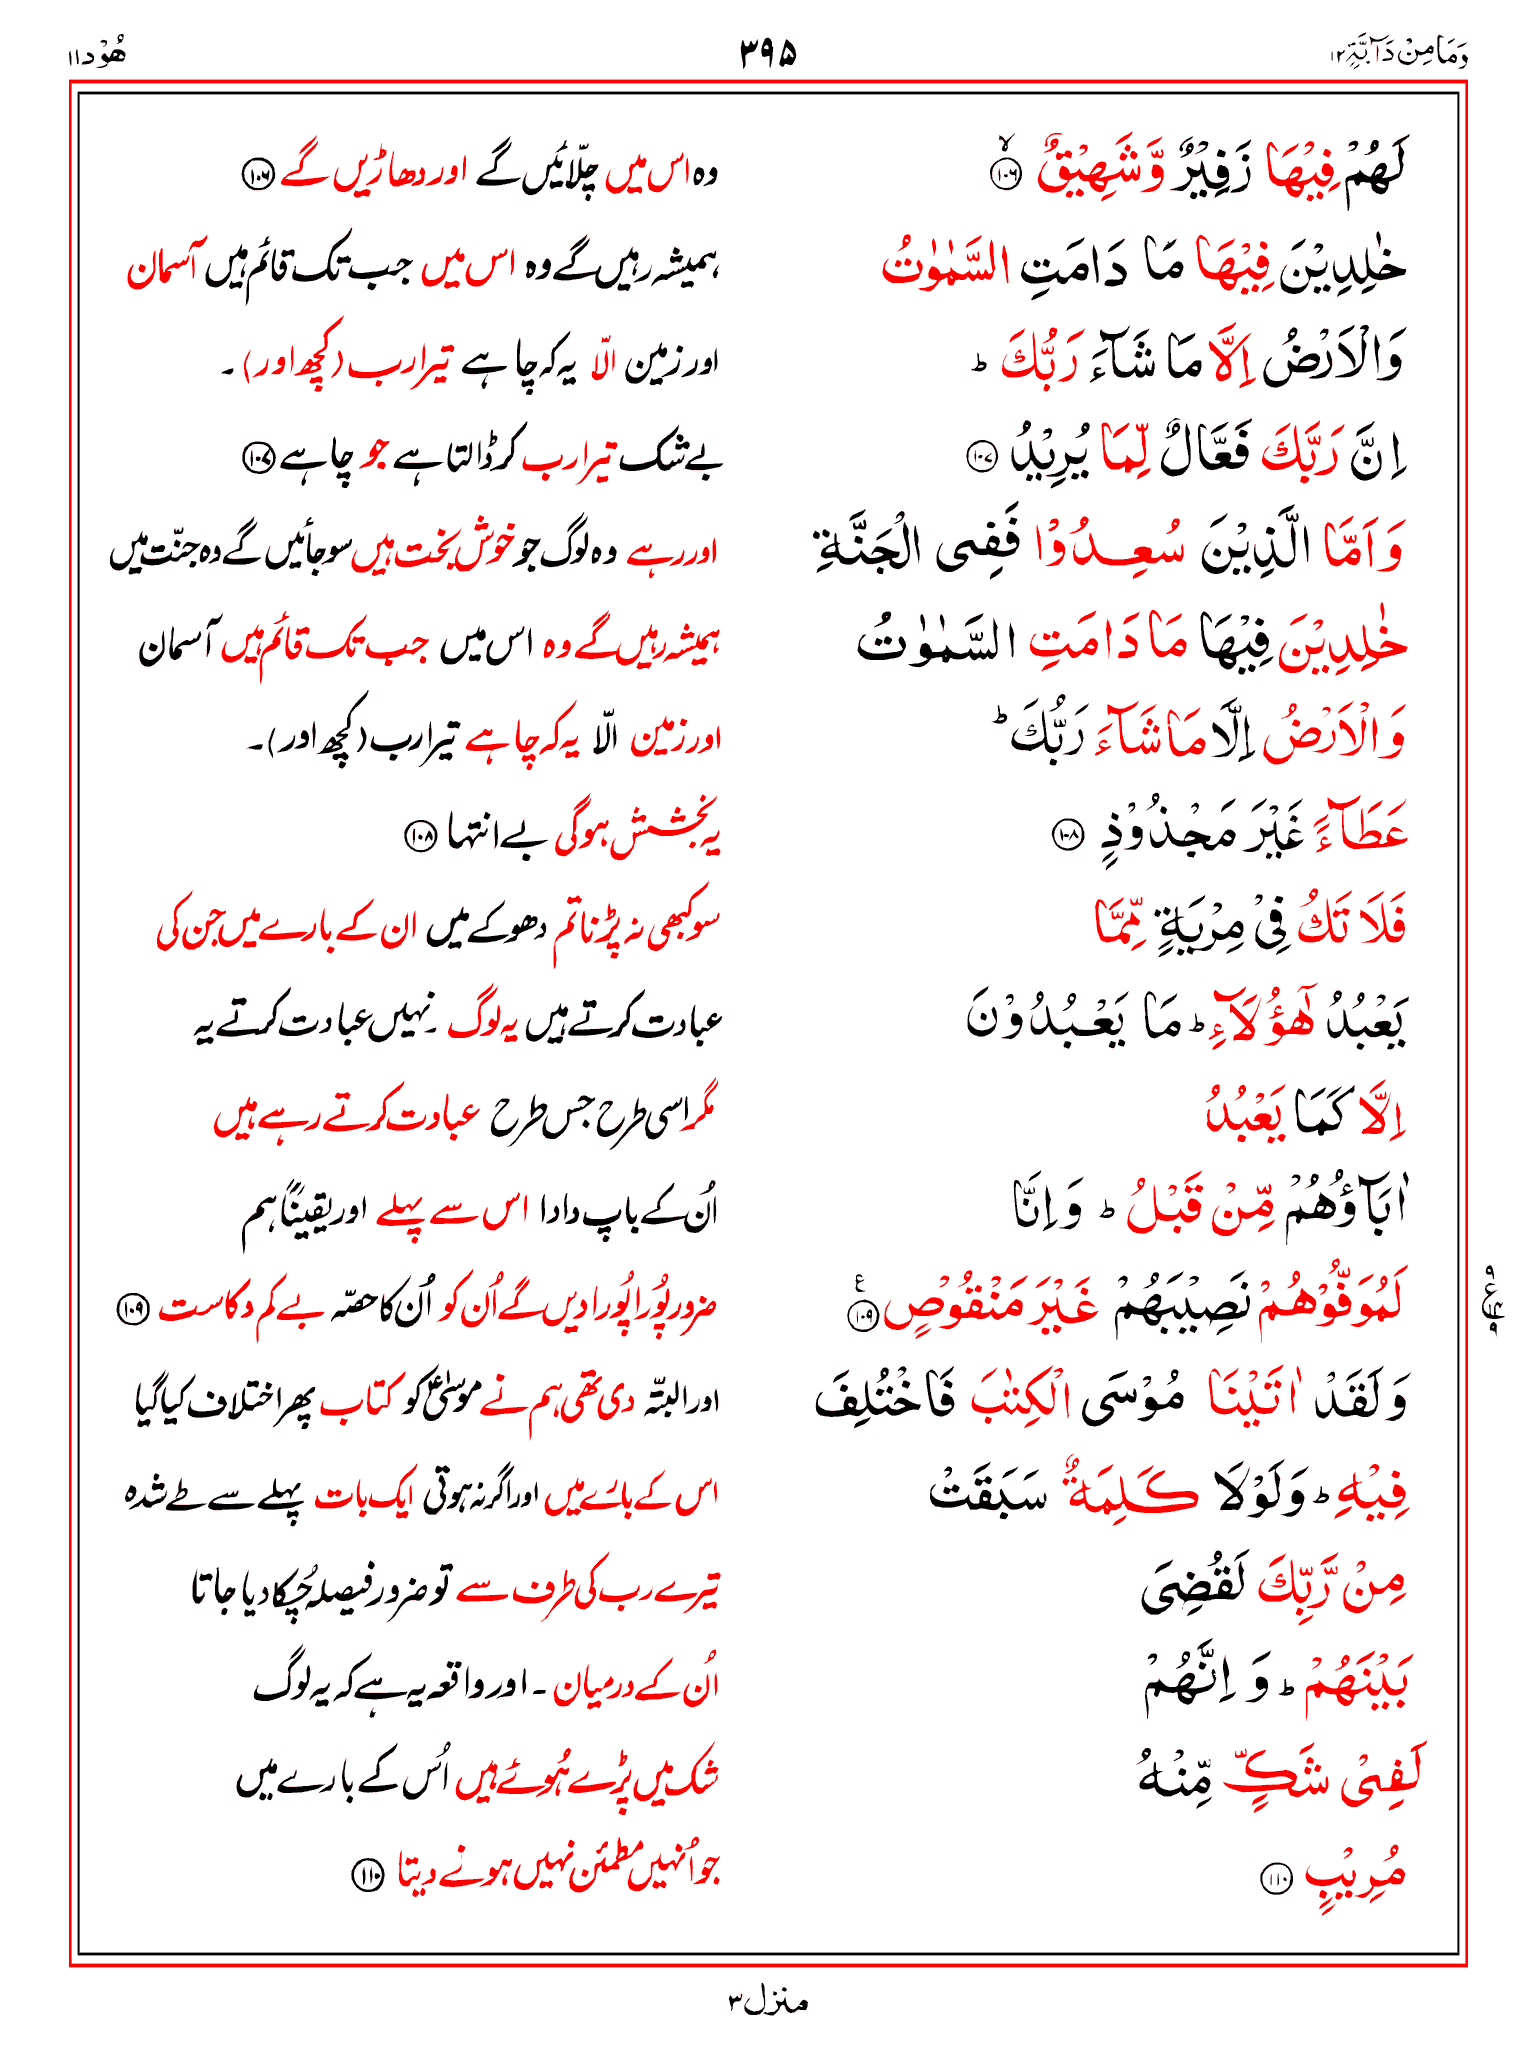 وَمَا مِنْ دَآبَّۃٍ ۱۲
۳۹۵
ھُوْد ۱۱
لَهُمْ فِيْهَا زَفِيْرٌ وَّشَهِيْقٌ ۙ۝۱۰۶
وہ اس میں چلّائیں گے اور دھاڑیں گے ۝۱۰۶
خٰلِدِيْنَ فِيْهَا مَا دَامَتِ السَّمٰوٰتُ
ہمیشہ رہیں گے وہ اس میں جب تک قائم ہیں آسمان
وَالْاَرْضُ اِلَّا مَا شَآءَ رَبُّكَ ؕ
اور زمین الّا یہ کہ چاہے تیرا رب (کچھ اور)۔
اِنَّ رَبَّكَ فَعَّالٌ لِّمَا يُرِيْدُ ۝۱۰۷
بے شک تیرا رب کر ڈالتا ہے جو چاہے ۝۱۰۷
وَاَمَّا الَّذِيْنَ سُعِدُوْا فَفِى الْجَنَّةِ
اور رہے وہ لوگ جو خوش بخت ہیں سو جائیں گے وہ جنّت میں
خٰلِدِيْنَ فِيْهَا مَا دَامَتِ السَّمٰوٰتُ
ہمیشہ رہیں گے وہ اس میں جب تک قائم ہیں آسمان
وَالْاَرْضُ اِلَّا مَا شَآءَ رَبُّكَ ؕ
اور زمین الّا یہ کہ چاہے تیرا رب (کچھ اور)۔
عَطَآءً غَيْرَ مَجْذُوْذٍ ۝۱۰۸
یہ بخشش ہوگی بے انتہا ۝۱۰۸
فَلَا تَكُ فِىْ مِرْيَةٍ مِّمَّا
سو کبھی نہ پڑنا تم دھوکے میں ان کے بارے میں جن کی
يَعْبُدُ هٰٓؤُلَآءِ ؕ مَا يَعْبُدُوْنَ
عبادت کرتے ہیں یہ لوگ۔ نہیں عبادت کرتے یہ
اِلَّا كَمَا يَعْبُدُ
مگر اسی طرح جس طرح عبادت کرتے رہے ہیں
اٰبَآؤُهُمْ مِّنْ قَبْلُ ؕ وَاِنَّا
اُن کے باپ دادا اس سے پہلے اور یقیناً ہم
لَمُوَفُّوْهُمْ نَصِيْبَهُمْ غَيْرَ مَنْقُوْصٍ ۝۱۰۹ ع
ضرور پُورا پُورا دیں گے اُن کو اُن کا حصّہ بے کم و کاست ۝۱۰۹
وَلَقَدْ اٰتَيْنَا مُوْسَى الْكِتٰبَ فَاخْتُلِفَ
اور البتّہ دی تھی ہم نے موسٰیؑ کو کتاب پھر اختلاف کیا گیا
فِيْهِ ؕ وَلَوْلَا كَلِمَةٌ سَبَقَتْ
اس کے بارے میں اور اگر نہ ہوتی ایک بات پہلے سے طے شدہ
مِنْ رَّبِّكَ لَقُضِىَ
تیرے رب کی طرف سے تو ضرور فیصلہ چُکا دیا جاتا
بَيْنَهُمْ ؕ وَ اِنَّهُمْ
اُن کے درمیان۔ اور واقعہ یہ ہے کہ یہ لوگ
لَفِىْ شَكٍّ مِّنْهُ
شک میں پڑے ہُوئے ہیں اُس کے بارے میں
مُرِيْبٍ ۝۱۱۰
جو اُنہیں مطمئن نہیں ہونے دیتا ۝۱۱۰
منزل ۳